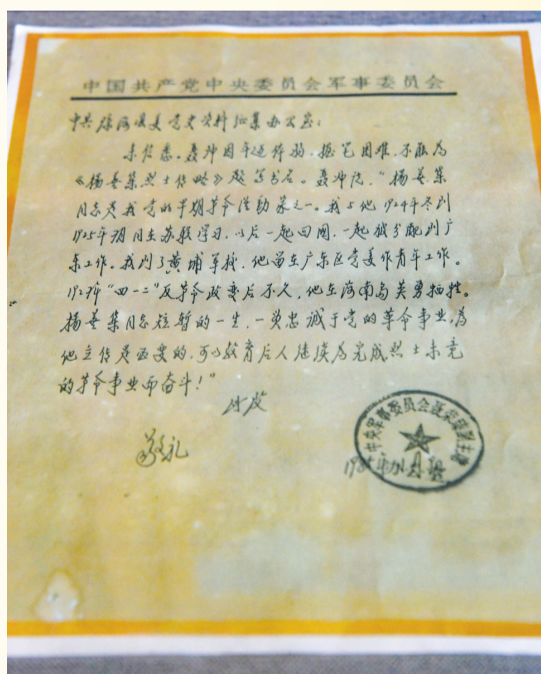 中国共产党中央委员会军事委员会
中共琼海县委党史资料征集办公室：
来信悉。聂帅因年迈体弱，握笔困难，不能为
《杨善集烈士传略》题写书名。聂帅说，“杨善集
同志是我党的早期革命活动家之一。我与他1924年冬到
1925年期间在苏联学习，以后一起回国，一起被分配到广
东工作。我到了黄埔军校，他留在广东区党委作青年工作。
1927年“四一二”反革命政变后不久，他在海南岛英勇牺牲。
杨善集同志短暂的一生，一贯忠诚于党的革命事业，为
他立传是必要的，可以教育后人继续为完成烈士未竟
的革命事业而奋斗！”
此致
敬礼
中央军事委员会聂荣臻副主席